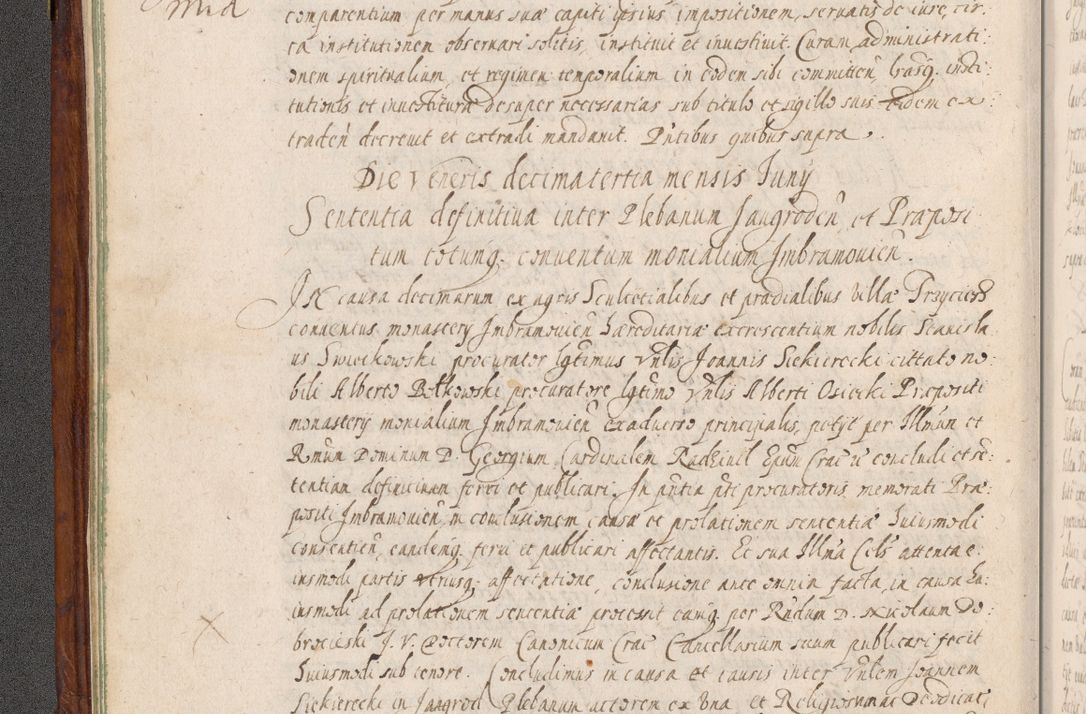 Mid
comparentium per manus suæ capiti ipsius impositionem, seruatis de iure, cir:
ca institutionem obseruari solitis, instituit et inuestiuit. Curam, administrati:
onem spiritualium, et regimen temporalium in eodem sibi committeñ, lrãsq, insti:
tutionis et inuestituræ desuper necessarias sub titulo et sigillo suis eidem ex:
tradeñ decreuit et extradi mandauit. Pñtibus quibus supra.
Die Veneris decimatertia mensis Juny
Sententia definitiua inter Plebanum Jangrodeñ, et Præposi
tum totumq, conuentum monialium Jmbramouieñ.
IN causa decimarum ex agris Scultetialibus et prædialibus Villæ Trzyciesz
conuentus monastery Jmbramouieñ hæreditariæ excrescentium nobilis Stanisla
us Swieikowski procurator lgtimus Vnlis Joannis Siekierecki cittato no:
bili Alberto Bełkowski procuratore lgtimo Vnlis Alberti Osiecki Præpositi
monastery monialium Jmbramouieñ ex aduerso principalis, petyt per Illmum et
Rmum Dominum D. Georgium Cardinalem Radziuil Epum Crac̃ c̃ concludi et sẽ:
tentiam definitiuam ferri et publicari. In pñtia pti procuratoris, memorati Præ:
positi Jmbramouieñ, in conclusionem causæ et prolationem sententiæ huiusmodi
consentieñ, eandemq, ferri et publicari affectantis. Et sua Illma Cels. attenta e:
iusmodi partis vtriusq, affectatione, conclusione ante omnia facta, in causa hu:
iusmodi ad prolationem sententiæ processit eamq, per Rndum D. Nicolaum Do:
brocieski J. V. Doctorem Canonicum Crac̃ Cancellarium suum publicari fecit
huiusmodi sub tenore. Concludimus in causa et causis inter Vnlem Joannem
Siekierecki in Jangrod Plebanum actorem ex vna, et Religiosumac Deodicat